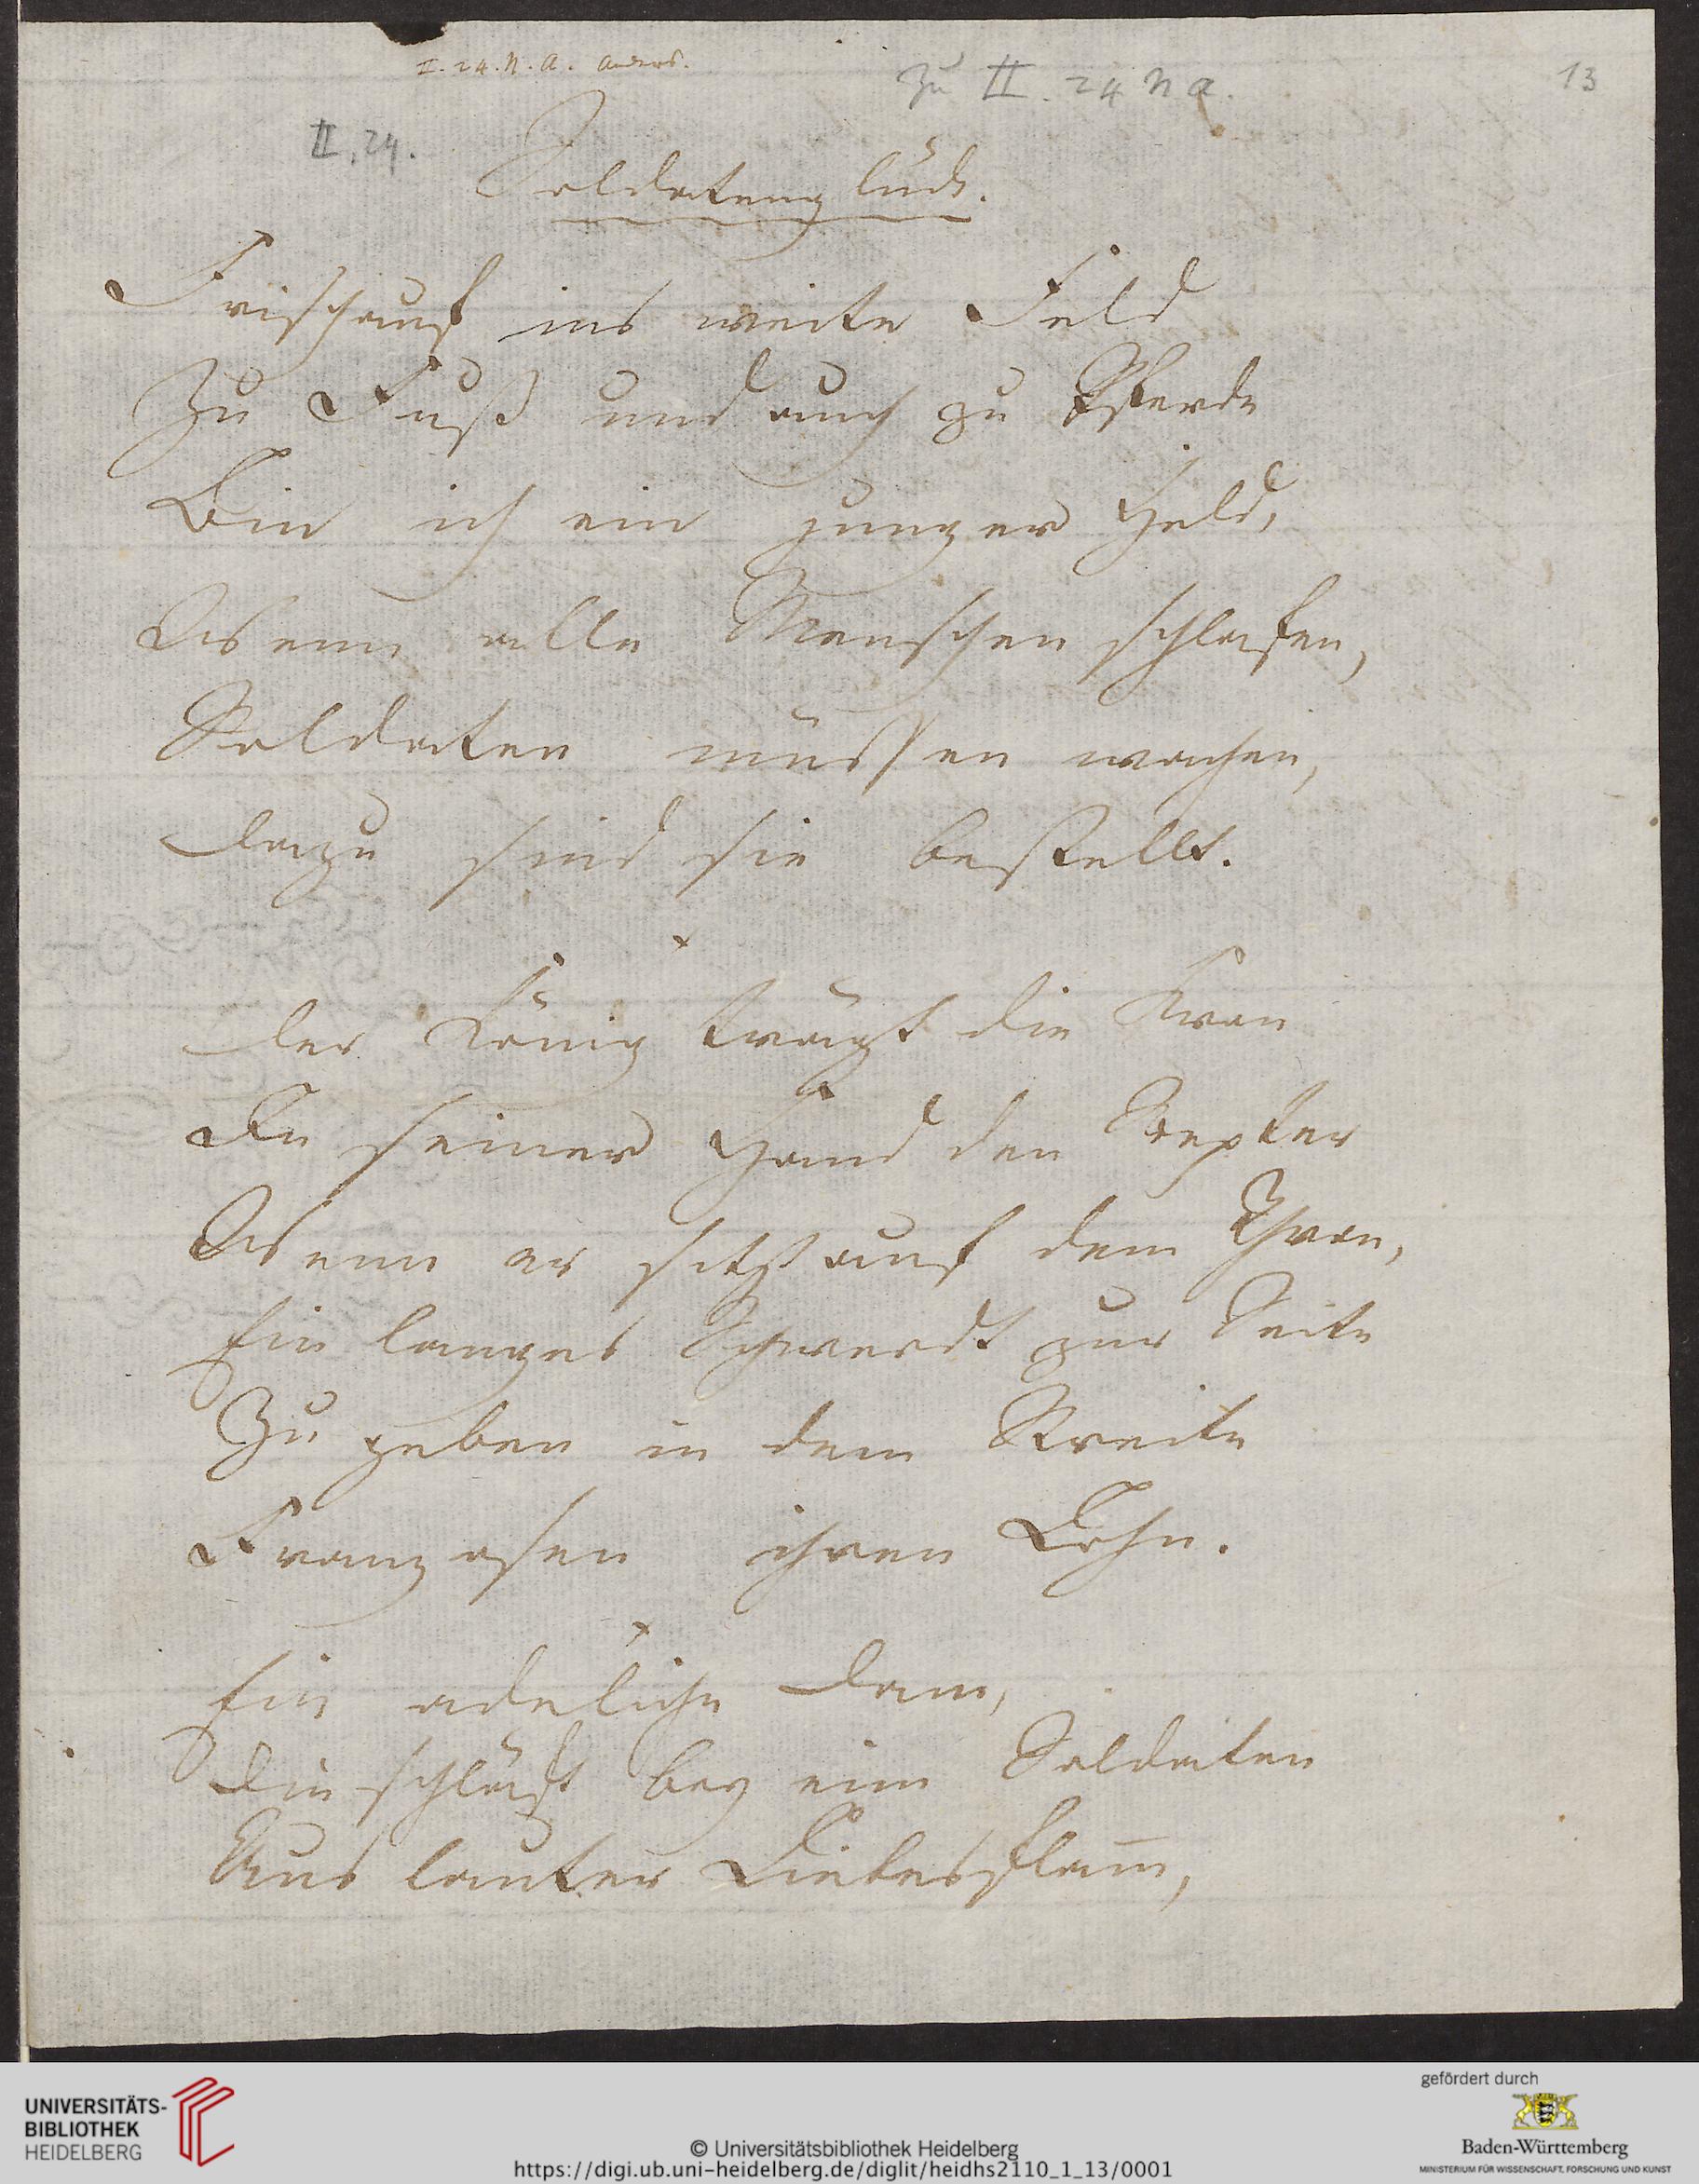 I. 24. N. A. anders.
zu II. 24 N A.
13
II, 24.
Soldatenglück.
Frischauf ins weite Feld
Zu Fuß und auch zu Pferde
Bin ich ein junger Held,
Wenn alle Menschen schlafen,
Soldaten müssen wachen,
Dazu sind sie bestellt.
Der König trägt die Kron
In seiner Hand den Zepter
Wenn er sitzt auf dem Thron,
Ein langes Schwerdt zur Seite
Zu geben in dem Streite
Franzosen ihren Lohn.
Ein adeliche Dam,
Die schläft bey eim Soldaten
Aus lauter Liebesflam̅,
UNIVERSITÄTS-
BIBLIOTHEK
HEIDELBERG
© Universitätsbibliothek Heidelberg
https://digi.ub.uni-heidelberg.de/diglit/heidhs2110_1_13/0001
gefördert durch
Baden-Württemberg
MINISTERIUM FÜR WISSENSCHAFT, FORSCHUNG UND KUNST